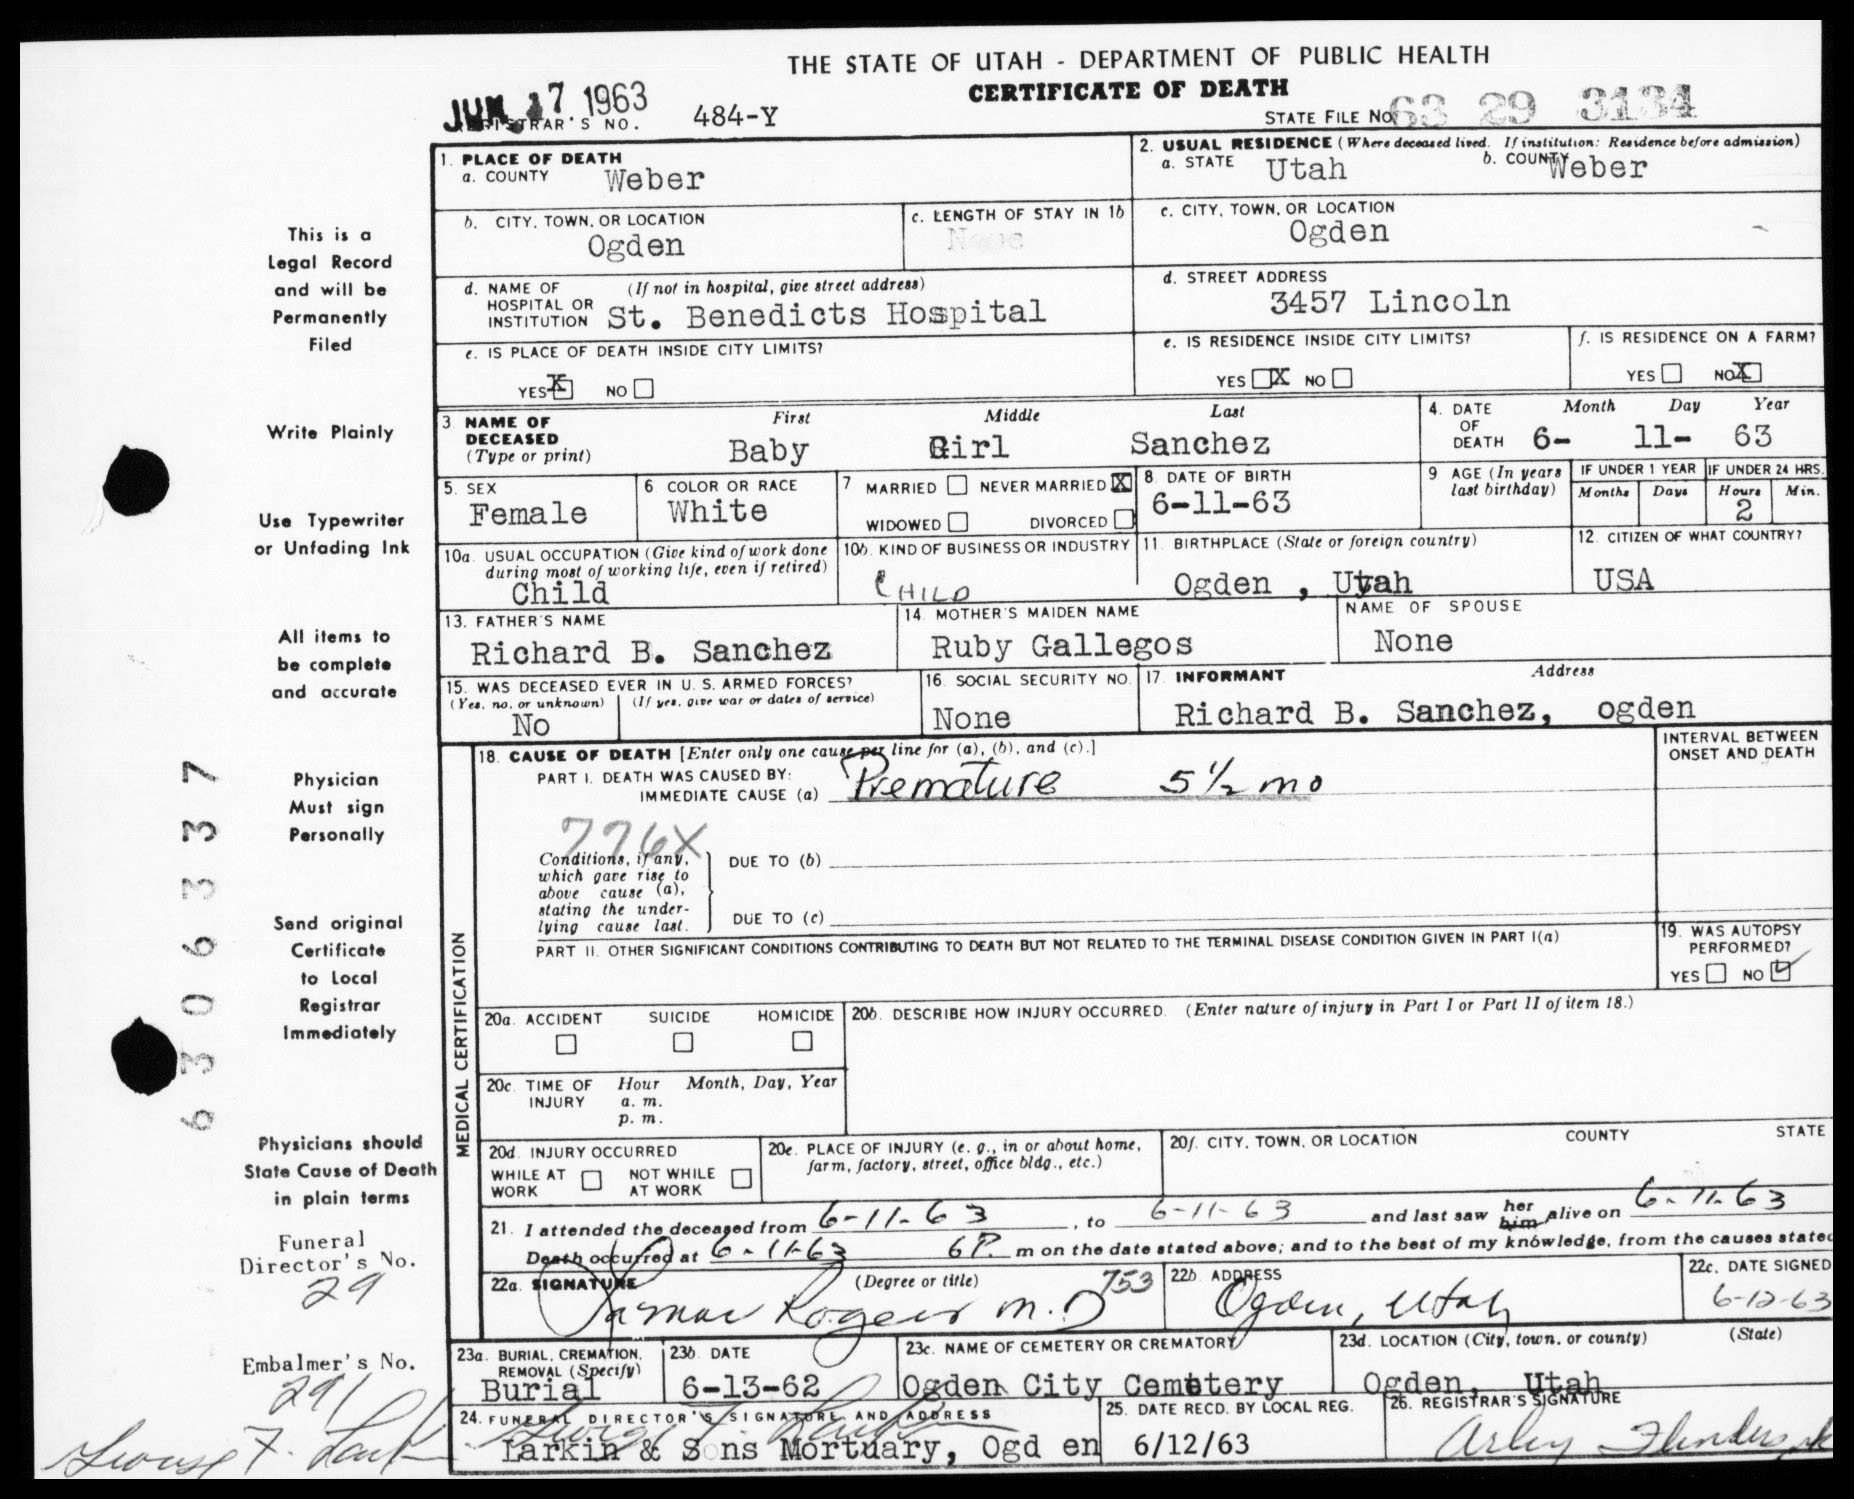 THE STATE OF UTAH - DEPARTMENT OF PUBLIC HEALTH
CERTIFICATE OF DEATH
JUN 17. 1963
REGISTRAR'S NO. 484-Y
STATE FILE NO. 63 29 3134
1. PLACE OF DEATH
a. COUNTY Weber
2. USUAL RESIDENCE (Where deceased lived. If institution: Residence before admission)
a. STATE Utah b. COUNTY Weber
b. CITY, TOWN, OR LOCATION
Ogden
c. LENGTH OF STAY IN 1b
None
c. CITY, TOWN, OR LOCATION
Ogden
d. NAME OF (If not in hospital, give street address)
HOSPITAL OR
INSTITUTION St. Benedicts Hospital
d. STREET ADDRESS
3457 Lincoln
e. IS PLACE OF DEATH INSIDE CITY LIMITS?
YES X NO
e. IS RESIDENCE INSIDE CITY LIMITS?
YES X NO
f. IS RESIDENCE ON A FARM?
YES NO X
3 NAME OF First Middle Last
DECEASED
(Type or print) Baby Girl Sanchez
4. DATE Month Day Year
OF
DEATH 6- 11- 63
5. SEX
Female
6 COLOR OR RACE
White
7 MARRIED NEVER MARRIED X
WIDOWED DIVORCED
8. DATE OF BIRTH
6-11-63
9 AGE (In years
last birthday)
IF UNDER 1 YEAR
Months Days
IF UNDER 24 HRS.
Hours Min.
2
10a. USUAL OCCUPATION (Give kind of work done
during most of working life, even if retired)
Child
10b. KIND OF BUSINESS OR INDUSTRY
CHILD
11. BIRTHPLACE (State or foreign country)
Ogden , Utah
12. CITIZEN OF WHAT COUNTRY?
USA
13. FATHER'S NAME
Richard B. Sanchez
14. MOTHER'S MAIDEN NAME
Ruby Gallegos
NAME OF SPOUSE
None
15. WAS DECEASED EVER IN U. S. ARMED FORCES?
(Yes, no, or unknown) (If yes, give war or dates of service)
No
16. SOCIAL SECURITY NO.
None
17. INFORMANT Address
Richard B. Sanchez, ogden
18. CAUSE OF DEATH [Enter only one cause per line for (a), (b), and (c).]
INTERVAL BETWEEN
ONSET AND DEATH
PART I. DEATH WAS CAUSED BY:
IMMEDIATE CAUSE (a) Premature 5 1/2 mo
776X
Conditions, if any,
which gave rise to
above cause (a),
stating the under-
lying cause last.
DUE TO (b)
DUE TO (c)
PART II. OTHER SIGNIFICANT CONDITIONS CONTRIBUTING TO DEATH BUT NOT RELATED TO THE TERMINAL DISEASE CONDITION GIVEN IN PART I(a)
19. WAS AUTOPSY
PERFORMED?
YES NO
MEDICAL CERTIFICATION
20a. ACCIDENT SUICIDE HOMICIDE
20b. DESCRIBE HOW INJURY OCCURRED. (Enter nature of injury in Part I or Part II of item 18.)
20c. TIME OF Hour Month, Day, Year
INJURY a. m.
p. m.
20d. INJURY OCCURRED
WHILE AT NOT WHILE
WORK AT WORK
20e. PLACE OF INJURY (e. g., in or about home,
farm, factory, street, office bldg., etc.)
20f. CITY, TOWN, OR LOCATION COUNTY STATE
21. I attended the deceased from 6-11-63, to 6-11-63 and last saw her him alive on 6-11-63
Death occurred at 6-11-63 6P. m on the date stated above; and to the best of my knowledge, from the causes stated
22a. SIGNATURE (Degree or title) 753
Lamar Rogers M.D
22b. ADDRESS
Ogden, Utah
22c. DATE SIGNED
6-12-63
23a. BURIAL, CREMATION,
REMOVAL (Specify)
Burial
23b. DATE
6-13-62
23c. NAME OF CEMETERY OR CREMATORY
Ogden City Cemetery
23d. LOCATION (City, town, or county) (State)
Ogden, Utah
24. FUNERAL DIRECTOR'S SIGNATURE AND ADDRESS
Larkin & Sons Mortuary, Ogd en
25. DATE RECD. BY LOCAL REG.
6/12/63
26. REGISTRAR'S SIGNATURE
Arley Flinders
This is a
Legal Record
and will be
Permanently
Filed
Write Plainly
Use Typewriter
or Unfading Ink
All items to
be complete
and accurate
Physician
Must sign
Personally
Send original
Certificate
to Local
Registrar
Immediately
Physicians should
State Cause of Death
in plain terms
Funeral
Director's No.
29
Embalmer's No.
291
George F. Larkin